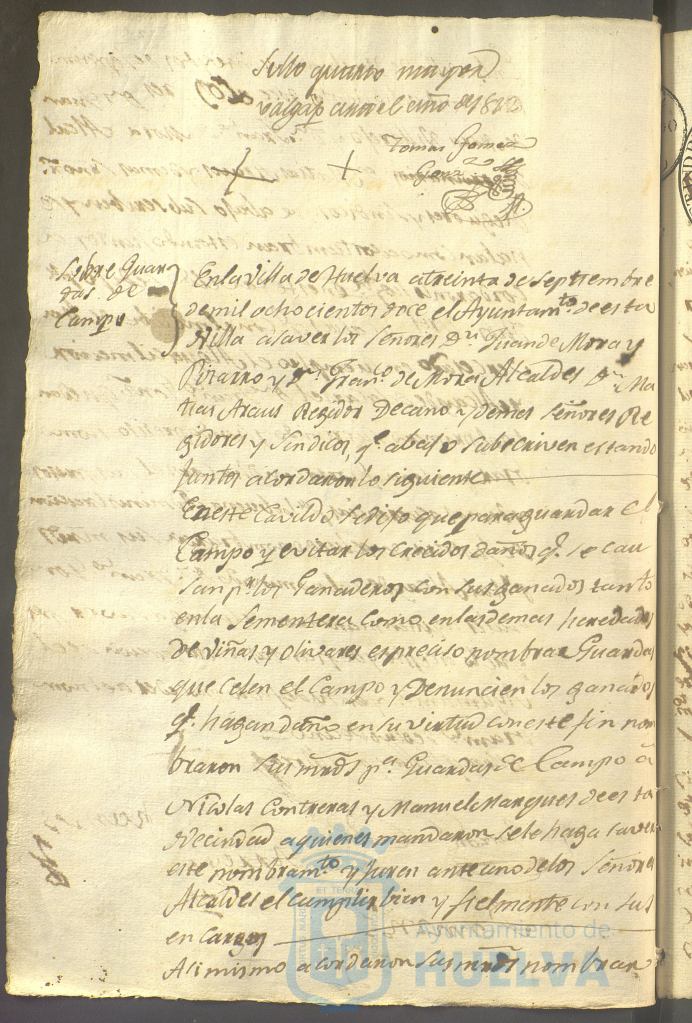 Sello quarto mayor
valga p.ª el año de 1813
Tomas Gomez
Sobre Guar
das de
Campo
En la Villa de Huelva a treinta de Septiembre
de mil ochocientos doce el Ayuntam.to de esta
Villa a saver los Señores D.n Juan de Mora y
Pizarro y D.n Fran.co de Mora Alcaldes D.n Ma
tias Arcus Regidor Decano y demas Señores Re
gidores y Sindicos, q.e abajo subscriven estando
juntos acordaron lo siguiente
En este Cavildo se dijo que para guardar el
Campo y evitar los crecidos daños q.e se cau
san p.r los Ganaderos con sus ganados tanto
en la Sementera como en las demas heredades
de Viñas y Olivares es preciso nombrar Guardas
que celen el Campo y Denuncien los ganados
q.e hagan daño en su virtud con este fin nom
braron sus mrds p.a Guardas de Campo a
Nicolas Contreras y Manuel Marques de esta
Vecindad a quienes mandaron se le haga saver
este nombram.to y juren ante uno de los Señores
Alcaldes el cumplir bien y fielmente con sus
encargos
Asi mismo acordaron sus mrds nombrar
Ayuntamiento de
HUELVA